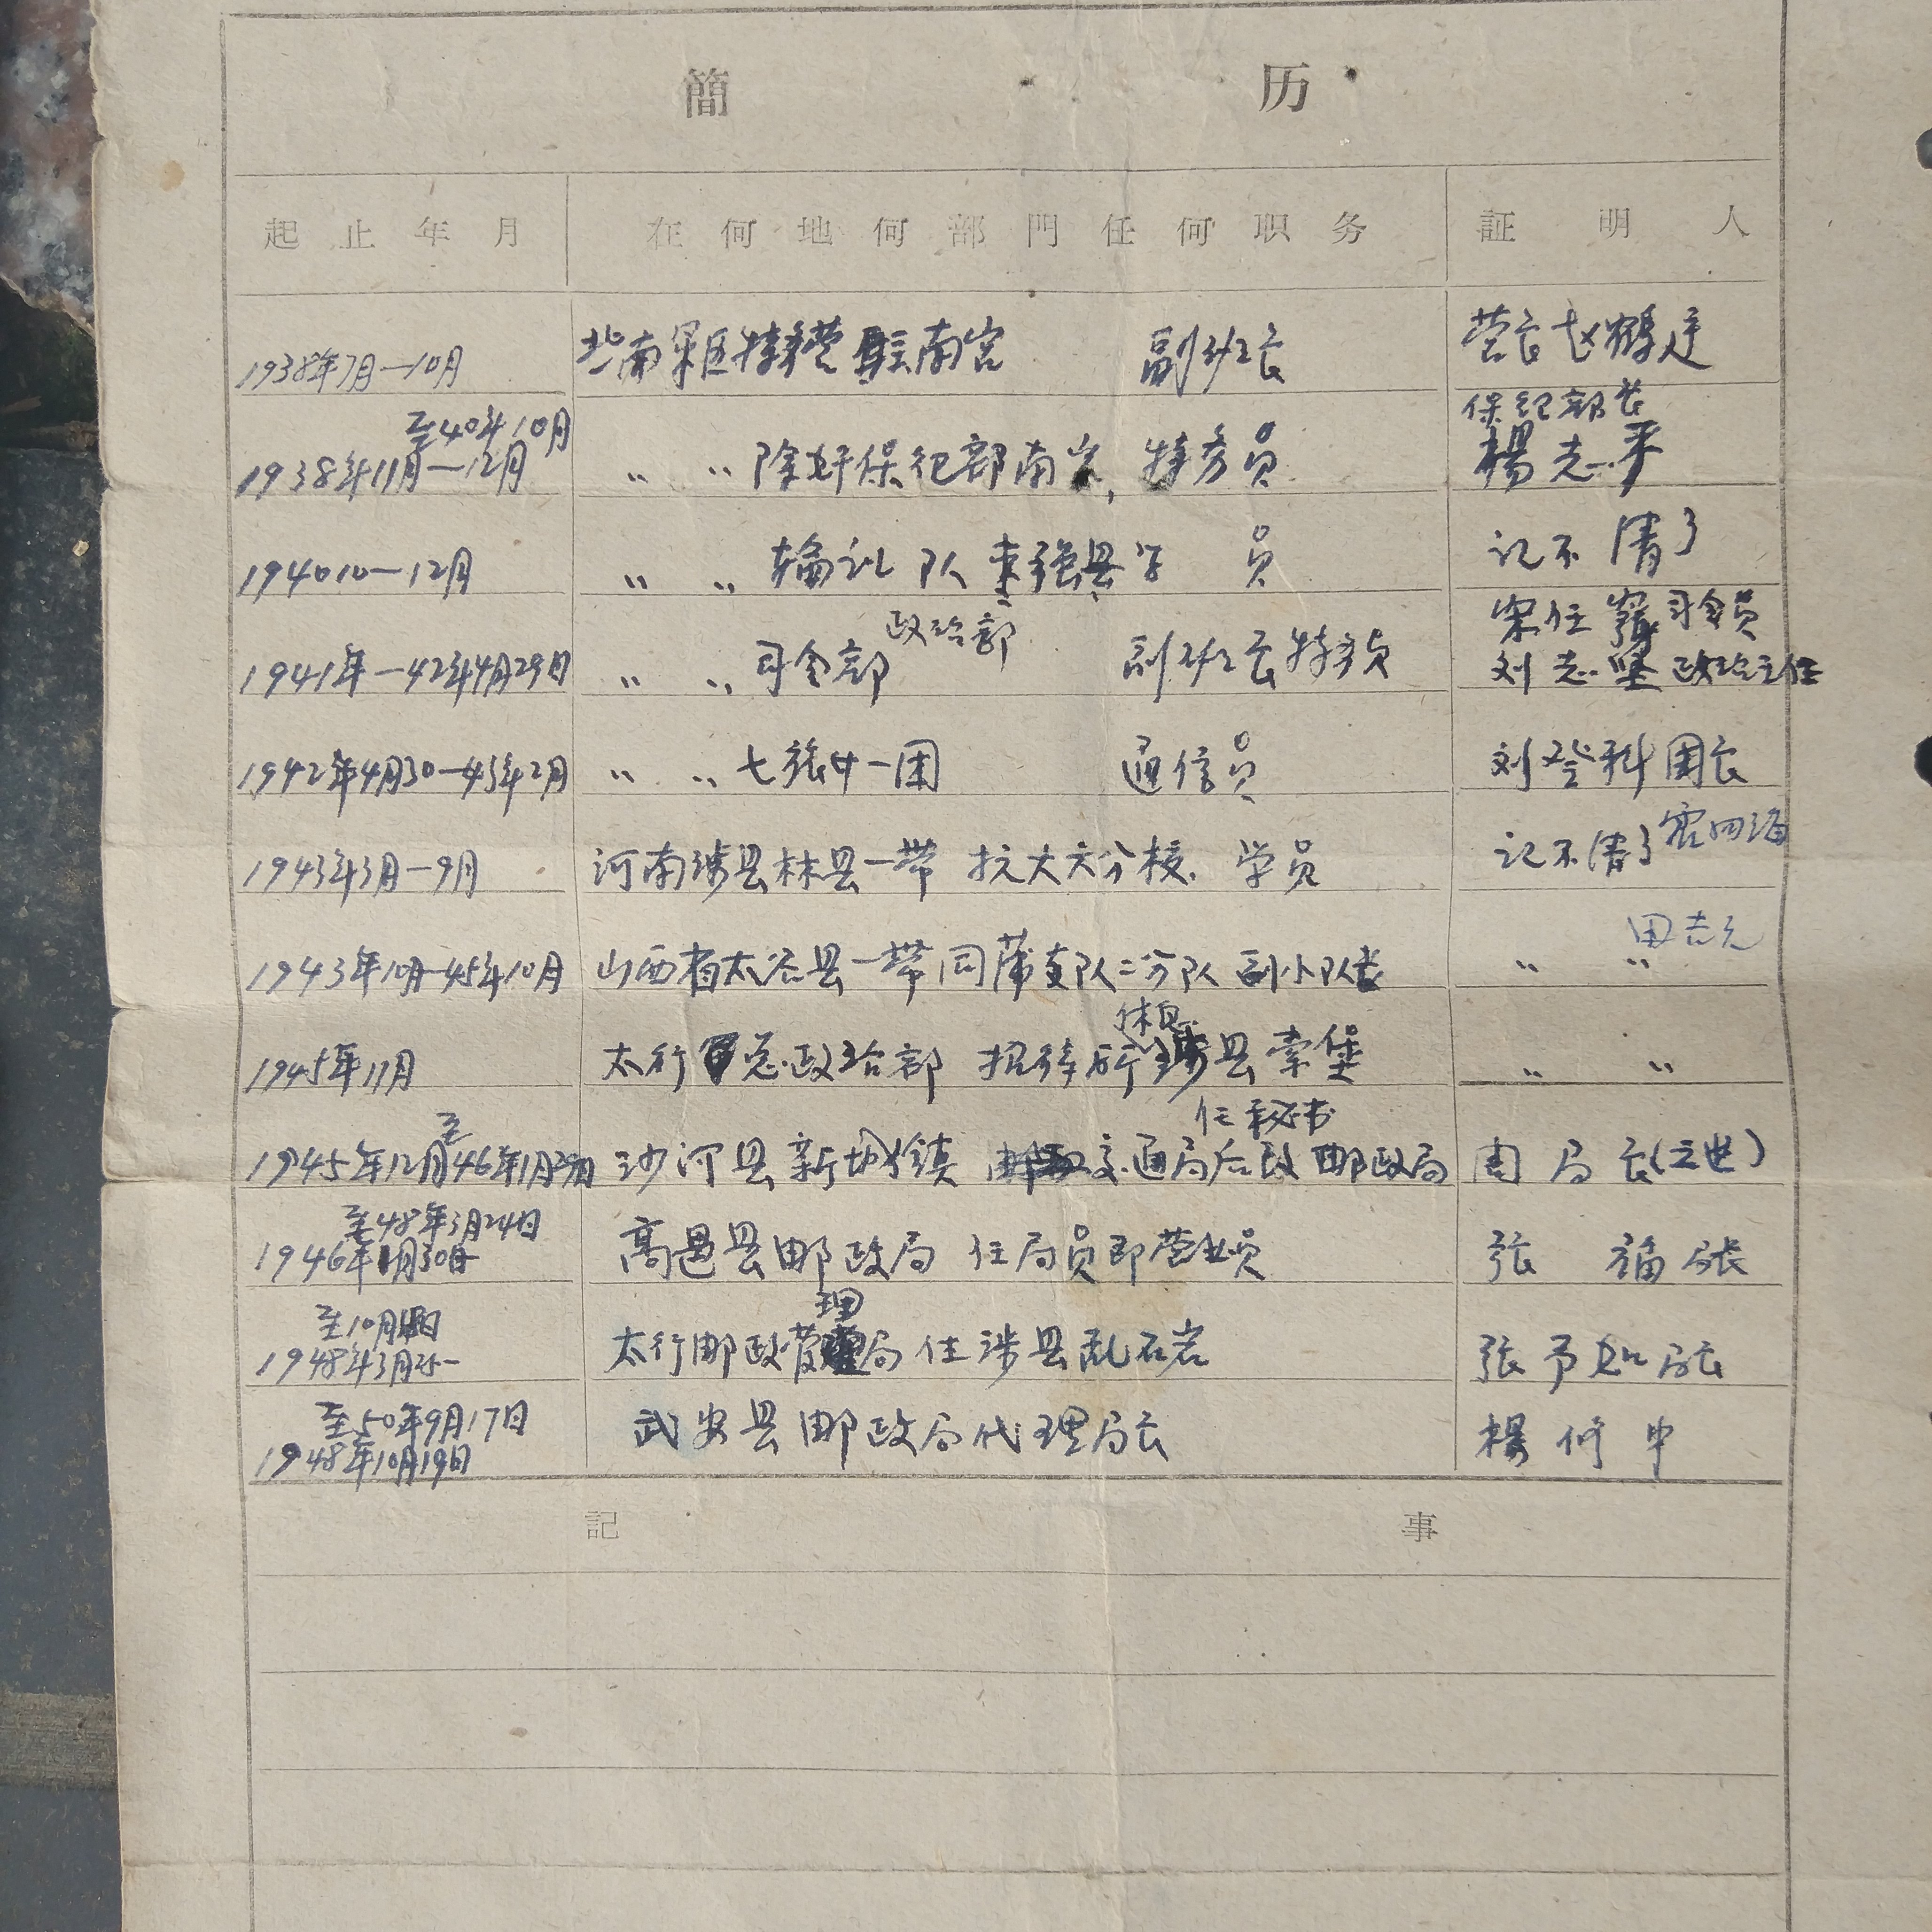 簡 历
起止年月 在何地何部門任何职务 証明人
1938年7月—10月 北南軍区特务营駐南宫 副班长 营长赵鶴廷
至40年10月 保犯部长
1938年11月—12月 〃 〃 除奸保犯部南宫, 特务员 楊志
194010—12月 〃 〃 輪训队 枣强县学 员 记不清了
政治部 宋任穷司令员
1941年—42年4月29日 〃 〃 司令部 副班长特务员 刘志坚政治主任
1942年4月30—43年2月 〃 〃 七旅廿一团 通信员 刘登科团长
1943年3月—9月 河南涉县林县一带 抗大六分校. 学员 记不清了
田吉元
1943年10月—45年10月 山西省太谷县一带同蒲支队二分队 副小队长 〃 〃
休息
1945年11月 太行 总政治部 招待所 涉县索堡 〃 〃
至 任秘书
1945年12月46年1月29日 沙河县新城镇 交通局后改邮政局 周局长(立世)
至48年3月24日
1946年1月30日 高邑县邮政局 任局员即营业员 张 福 局长
至10月18日 理
1948年3月25— 太行邮政管局住涉县乱石岩 張予如局长
至50年9月17日
1948年10月19日 武安县邮政局代理局长 楊何中
記 事